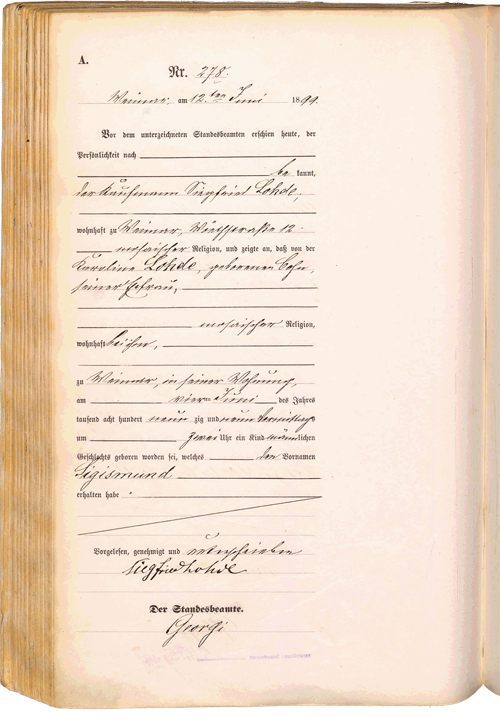 A.
Nr. 278.
Weimar, am 12.ten Juni 1899.
Vor dem unterzeichneten Standesbeamten erschien heute, der
Persönlichkeit nach
be kannt,
der Kaufmann Siegfried Lohde,
wohnhaft zu Weimar, 12.
mosaischer Religion, und zeigte an, daß von der
Karoline Lohde, geborenen Cohn,
seiner Ehefrau,
mosaischer Religion,
wohnhaft bei ihm,
zu Weimar, in seiner Wohnung,
am vier ten Juni des Jahres
tausend acht hundert neun zig und neun Vormittags
um zwei Uhr ein Kind männlichen
Geschlechts geboren worden sei, welches den Vornamen
Sigismund
erhalten habe .
Vorgelesen, genehmigt und unterschrieben
Siegfried Lohde
Der Standesbeamte.
Georgi